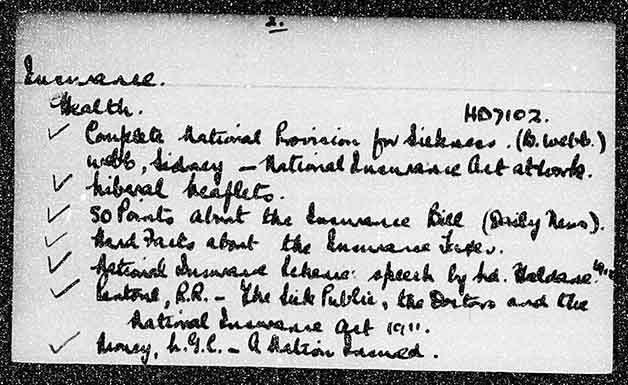 2.
Insurance.
Health. HD7102.
✓ Complete National Provision for Sickness. (B. Webb.)
Webb, Sidney – National Insurance Act at work.
✓ Liberal Leaflets.
✓ 50 Points about the Insurance Bill (Daily News).
✓ Hard Facts about the Insurance
✓ National Insurance Scheme: speech by Ld. Haldane.
✓ R.R. – The Sick Public, the Doctors and the
National Insurance Act 1911.
✓ Money, L.G.C. – A Nation Insured.